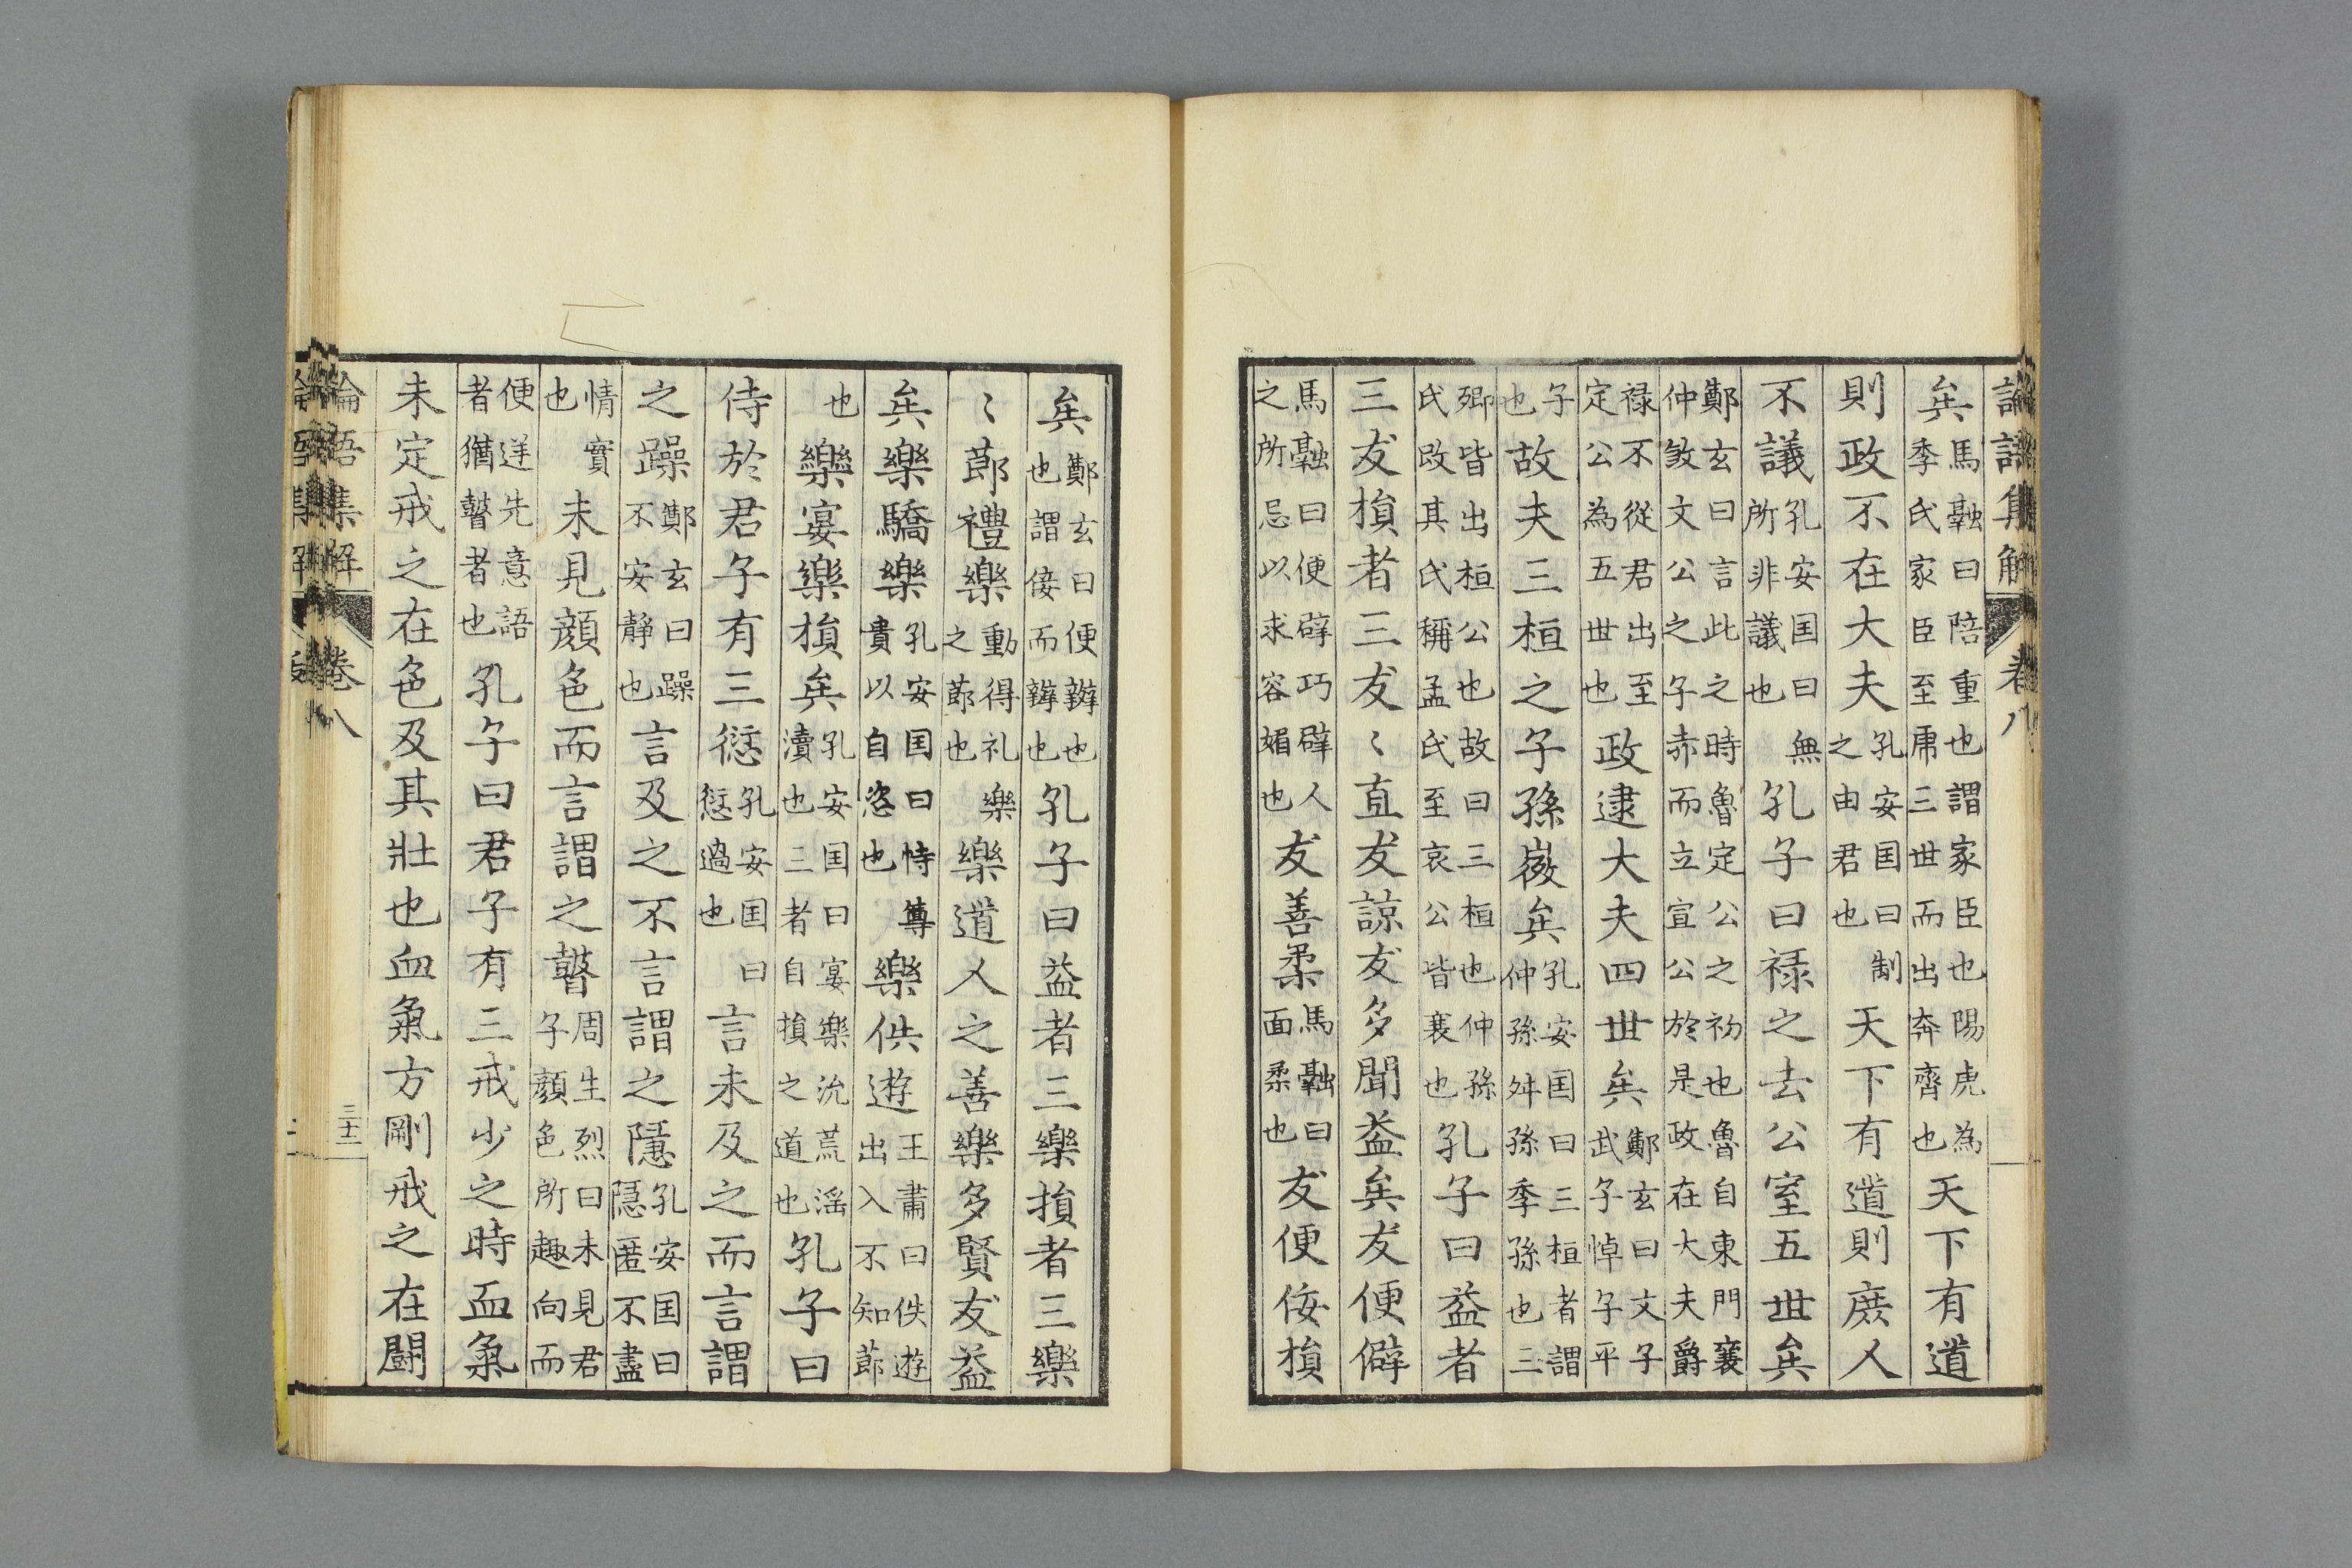 論語集解 卷八
矣馬融曰陪重也謂家臣也陽虎為季氏家臣至虎三世而出奔齊也天下有道
則政不在大夫孔安囯曰制之由君也天下有道則庶人
不議孔安囯曰無所非議也孔子曰禄之去公室五世矣
鄭玄曰言此之時魯定公之初也魯自東門襄仲煞文公之子赤而立宣公於是政在大夫爵
禄不從君出至定公為五世也政逮大夫四世矣鄭玄曰文子武子悼子平
子也故夫三桓之子孫微矣孔安囯曰三桓者謂仲孫舛孫季孫也三
卿皆出桓公也故曰三桓也仲孫氏改其氏稱孟氏至哀公皆衰也孔子曰益者
三友損者三友〻直友諒友多聞益矣友便僻
馬融曰便辟巧辟人之所忌以求容媚也友善柔馬融曰面柔也友便佞損
矣鄭玄曰便辨也也謂佞而辨也孔子曰益者三樂損者三樂
〻節禮樂動得礼樂之節也樂道人之善樂多賢友益
矣樂驕樂孔安囯曰恃尊貴以自恣也樂佚遊王肅曰佚遊出入不知節
也樂宴樂損矣孔安囯曰宴樂沉荒淫瀆也三者自損之道也孔子曰
侍於君子有三愆孔安囯曰愆過也言未及之而言謂
之躁鄭玄曰躁不安静也言及之不言謂之隱孔安囯曰隠匿不盡
情實也未見顔色而言謂之瞽周生烈曰未見君子顔色所趣向而
便逆先意語者猶瞽者也孔子曰君子有三戒少之時血氣
未定戒之在色及其壯也血氣方剛戒之在闘
論語集解 卷八 三十二